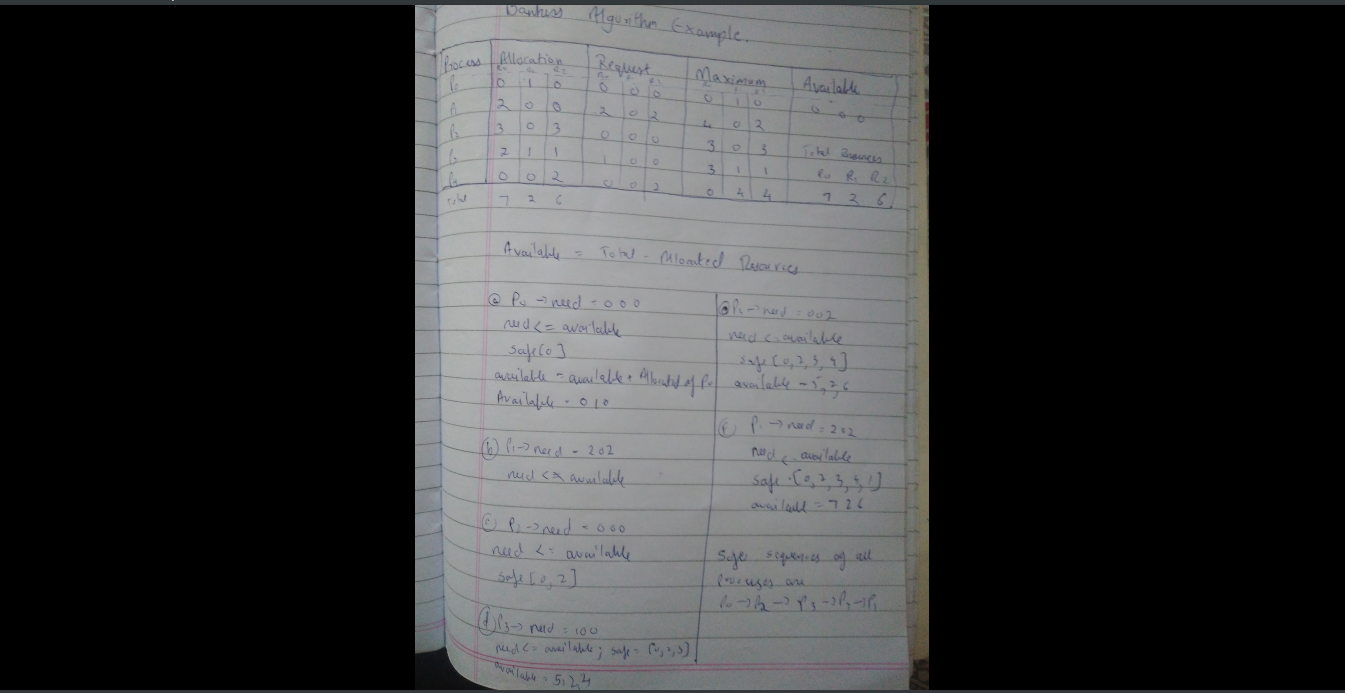 Bankers Algorithm Example.
Process Allocation Request Maximum Available
P0 0 1 0 0 0 0 0 1 0 0 0 0
P1 2 0 0 2 0 2 4 0 2
P2 3 0 3 0 0 0 3 0 3 Total Resources
P3 2 1 1 1 0 0 3 1 1 R0 R1 R2
P4 0 0 2 0 0 2 0 4 4 7 2 6
Total 7 2 6
Available = Total - Allocated Resources
(a) P0 → need = 0 0 0
need <= available
safe[0]
available = available + Allocated of P0
Available = 0 1 0
(b) P1 → need = 202
need <= available
(c) P2 → need = 000
need <= available
safe[0, 2]
(d) P3 → need = 100
need <= available; safe = [0,2,3]
available = 5,2,4
need = 002
need <= available
safe [0, 2, 3, 4]
available = 5,2,6
need = 202
need < available
safe = [0, 2, 3, 4, 1]
available = 7 2 6
Safe sequences of all
processes are
P0 → P2 → P3 → → P1